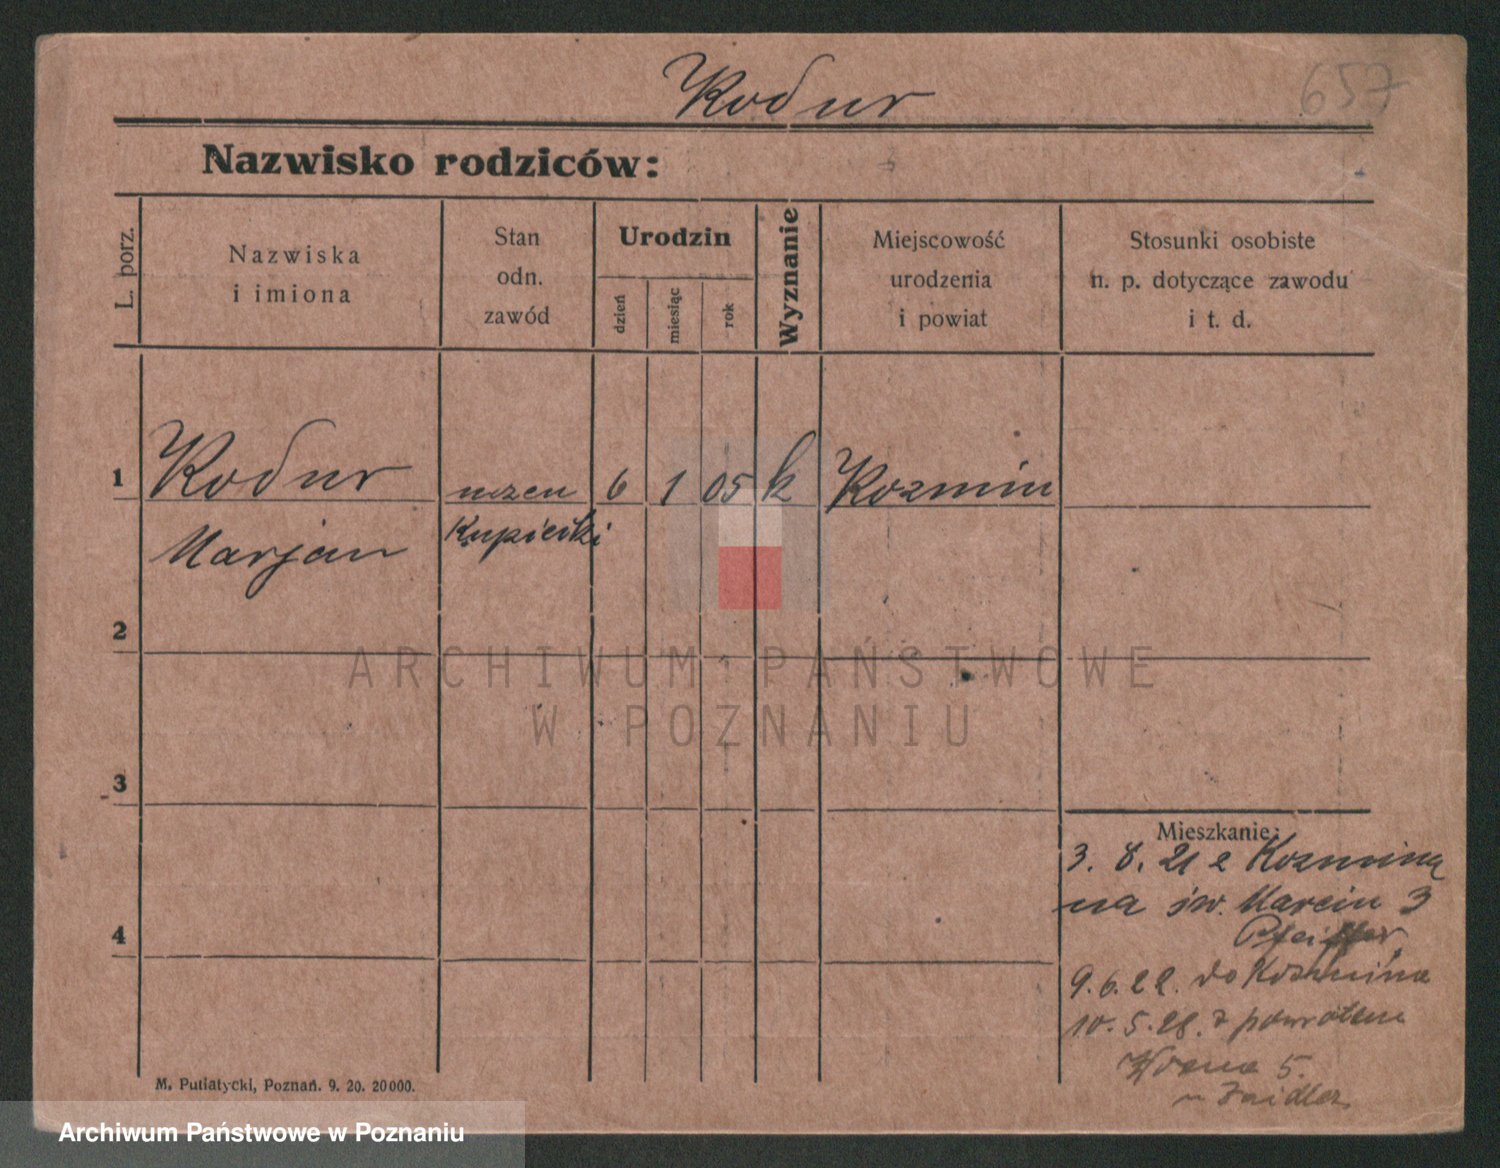 Kodur
657
Nazwisko rodziców:
L. porz.
Nazwiska
i imiona
Stan
odn.
zawód
Urodzin
dzień
miesiąc
rok
Wyznanie
Miejscowość
urodzenia
i powiat
Stosunki osobiste
n. p. dotyczące zawodu
i t. d.
1
Kodur
uczeń
6
1
05
k
Kozmin
Marjan
Kupiecki
2
3
4
Mieszkanie:
3. 8. 21 z Kozmina
na św. Marcin 3
Pfeiffer
9. 6. 22. do Kozmina
10. 5. 28. z powrotem
5.
u Zaidler
M. Putiatycki, Poznań. 9. 20. 20000.
ARCHIWUM PAŃSTWOWE
W POZNANIU
Archiwum Państwowe w Poznaniu